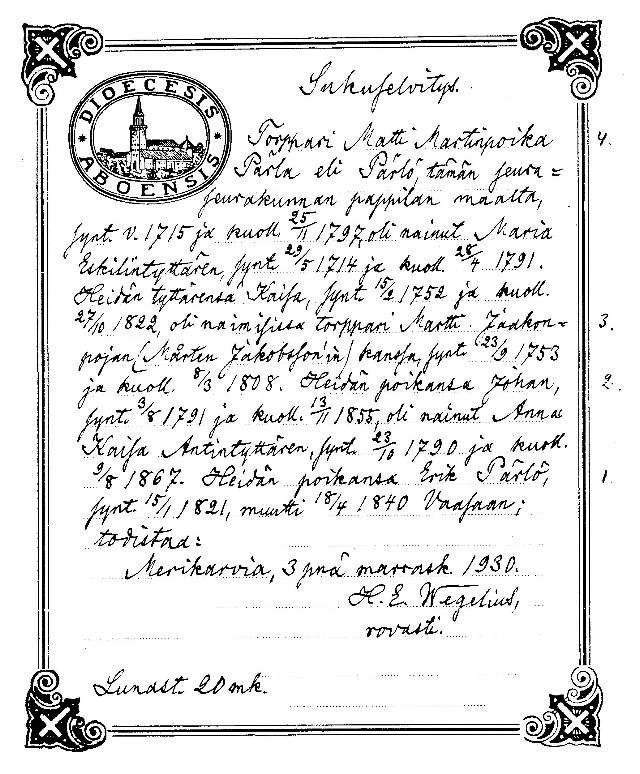 DIOECESIS ABOENSIS
Sukuselvitys.
Torppari Matti Martinpoika
Pärla eli Pärlö, tämän seura=
seurakunnan pappilan maalta,
synt. v. 1715 ja kuoll. 25/11 1797, oli nainut Maria
Eskilintyttären, synt. 29/5 1714 ja kuoll. 28/4 1791.
Heidän tyttärensä Kaisa, synt. 15/2 1752 ja kuoll.
27/10 1822, oli naimisissa torppari Martti Jaakon=
pojan (Mårten Jakobsson'in) kanssa, synt. 23/9 1753
ja kuoll. 8/3 1808. Heidän poikansa Johan,
synt. 3/8 1791 ja kuoll. 13/11 1855, oli nainut Anna
Kaisa Antintyttären, synt. 23/10 1790 ja kuoll.
9/8 1867. Heidän poikansa Erik Pärlö,
synt. 15/1 1821, muutti 18/4 1840 Vaasaan;
todistaa:
Merikarvia, 3 pnä marrask. 1930.
H. E. Wegelius,
rovasti.
Lunast. 20 mk.
4.
3.
2.
1.